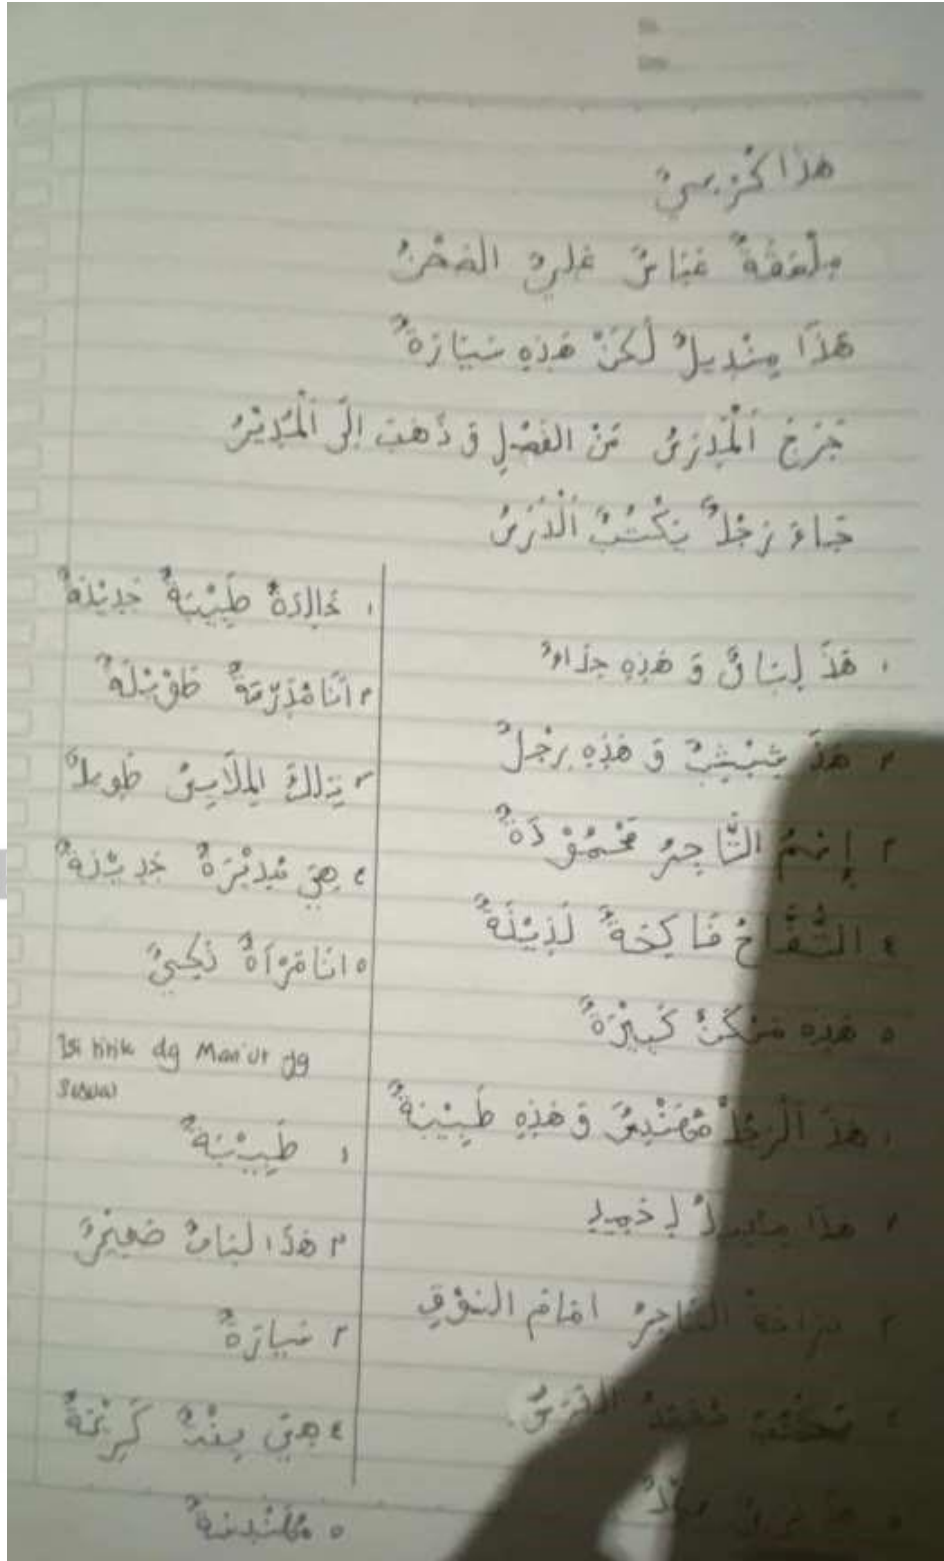 هَذَا كُرْسِيٌ
مِلْعَقَةٌ عَبَاسٌ عَلِيٌ الصَحْنُ
هَذَا مِنْدِيلٌ لَكِنْ هَذِهِ سَيَارَةٌ
خَرَجَ اَلْمُدَرِسُ مِنْ الفَصْلِ وَ ذَهَبَ اِلَى اَلْمُدِيْرُ
جَاءَ رَجُلٌ يَكْتُبُ اَلْدَرَسُ
١ هَذَ لِبَاسٌ وَ هَذِهِ حِذَاءٌ
٢ هَذَ شِبْشِبٌ وَ هَذِهِ رِجْلٌ
٣ التَّاجِرُ مَحْمُوْدَةٌ
٤ التُّفَّاحُ فَاكِحَةٌ لَذِيْذَةٌ
٥ هَذِهِ مَسْكَنٌ كَبِيْرَةٌ
١ هَذَ اَلْرَجُلٌ مُهَنْدِسٌ وَ هَذِهِ طَبِيْبَةٌ
٢ هَذَا مِنْدِيلٌ لِ حَمِيدِ
٣ التَاجِرُ اَمَامَ السُوْقِ
٤ الدَرَسُ.
٥
١ خَالِدَةٌ طَبِيْبَةٌ جَدِيْدَةٌ
٢ اَنَا مُدَرِّسَةٌ طَوْيْلَةٌ
٣ تِلكَ المِلَابِسُ طَوِيلٌ
٤ هِيَ مُدِيْرَةٌ جَدِيْدَةٌ
٥ اَنَا مَرْاَةٌ ذَكِيٌ
Isi titik dg Man'ut yg
sesuai
١ طَبِيْبَةٌ
٢ هَذَا لِبَاسٌ صَغِيْرٌ
٣ سَيَارَةٌ
٤ هِيَ بِنْتٌ كَرِيْمَةٌ
٥ مُهَنْدِسَةٌ